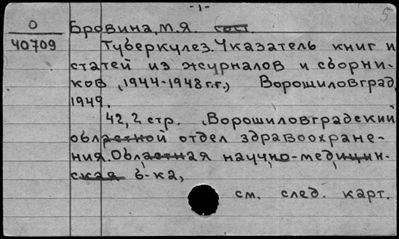 -1-
5
О
40709
Бровина, М.Я. сост.
Туберкулез. Указатель книг и
статей из журналов и сборни-
ков (1944-1948 г.г.) Ворошиловград,
1949.
42, 2 стр. (Ворошиловградский
областной отдел здравоохране-
ния. Областная научно-медицин-
ская б-ка)
см. след. карт.